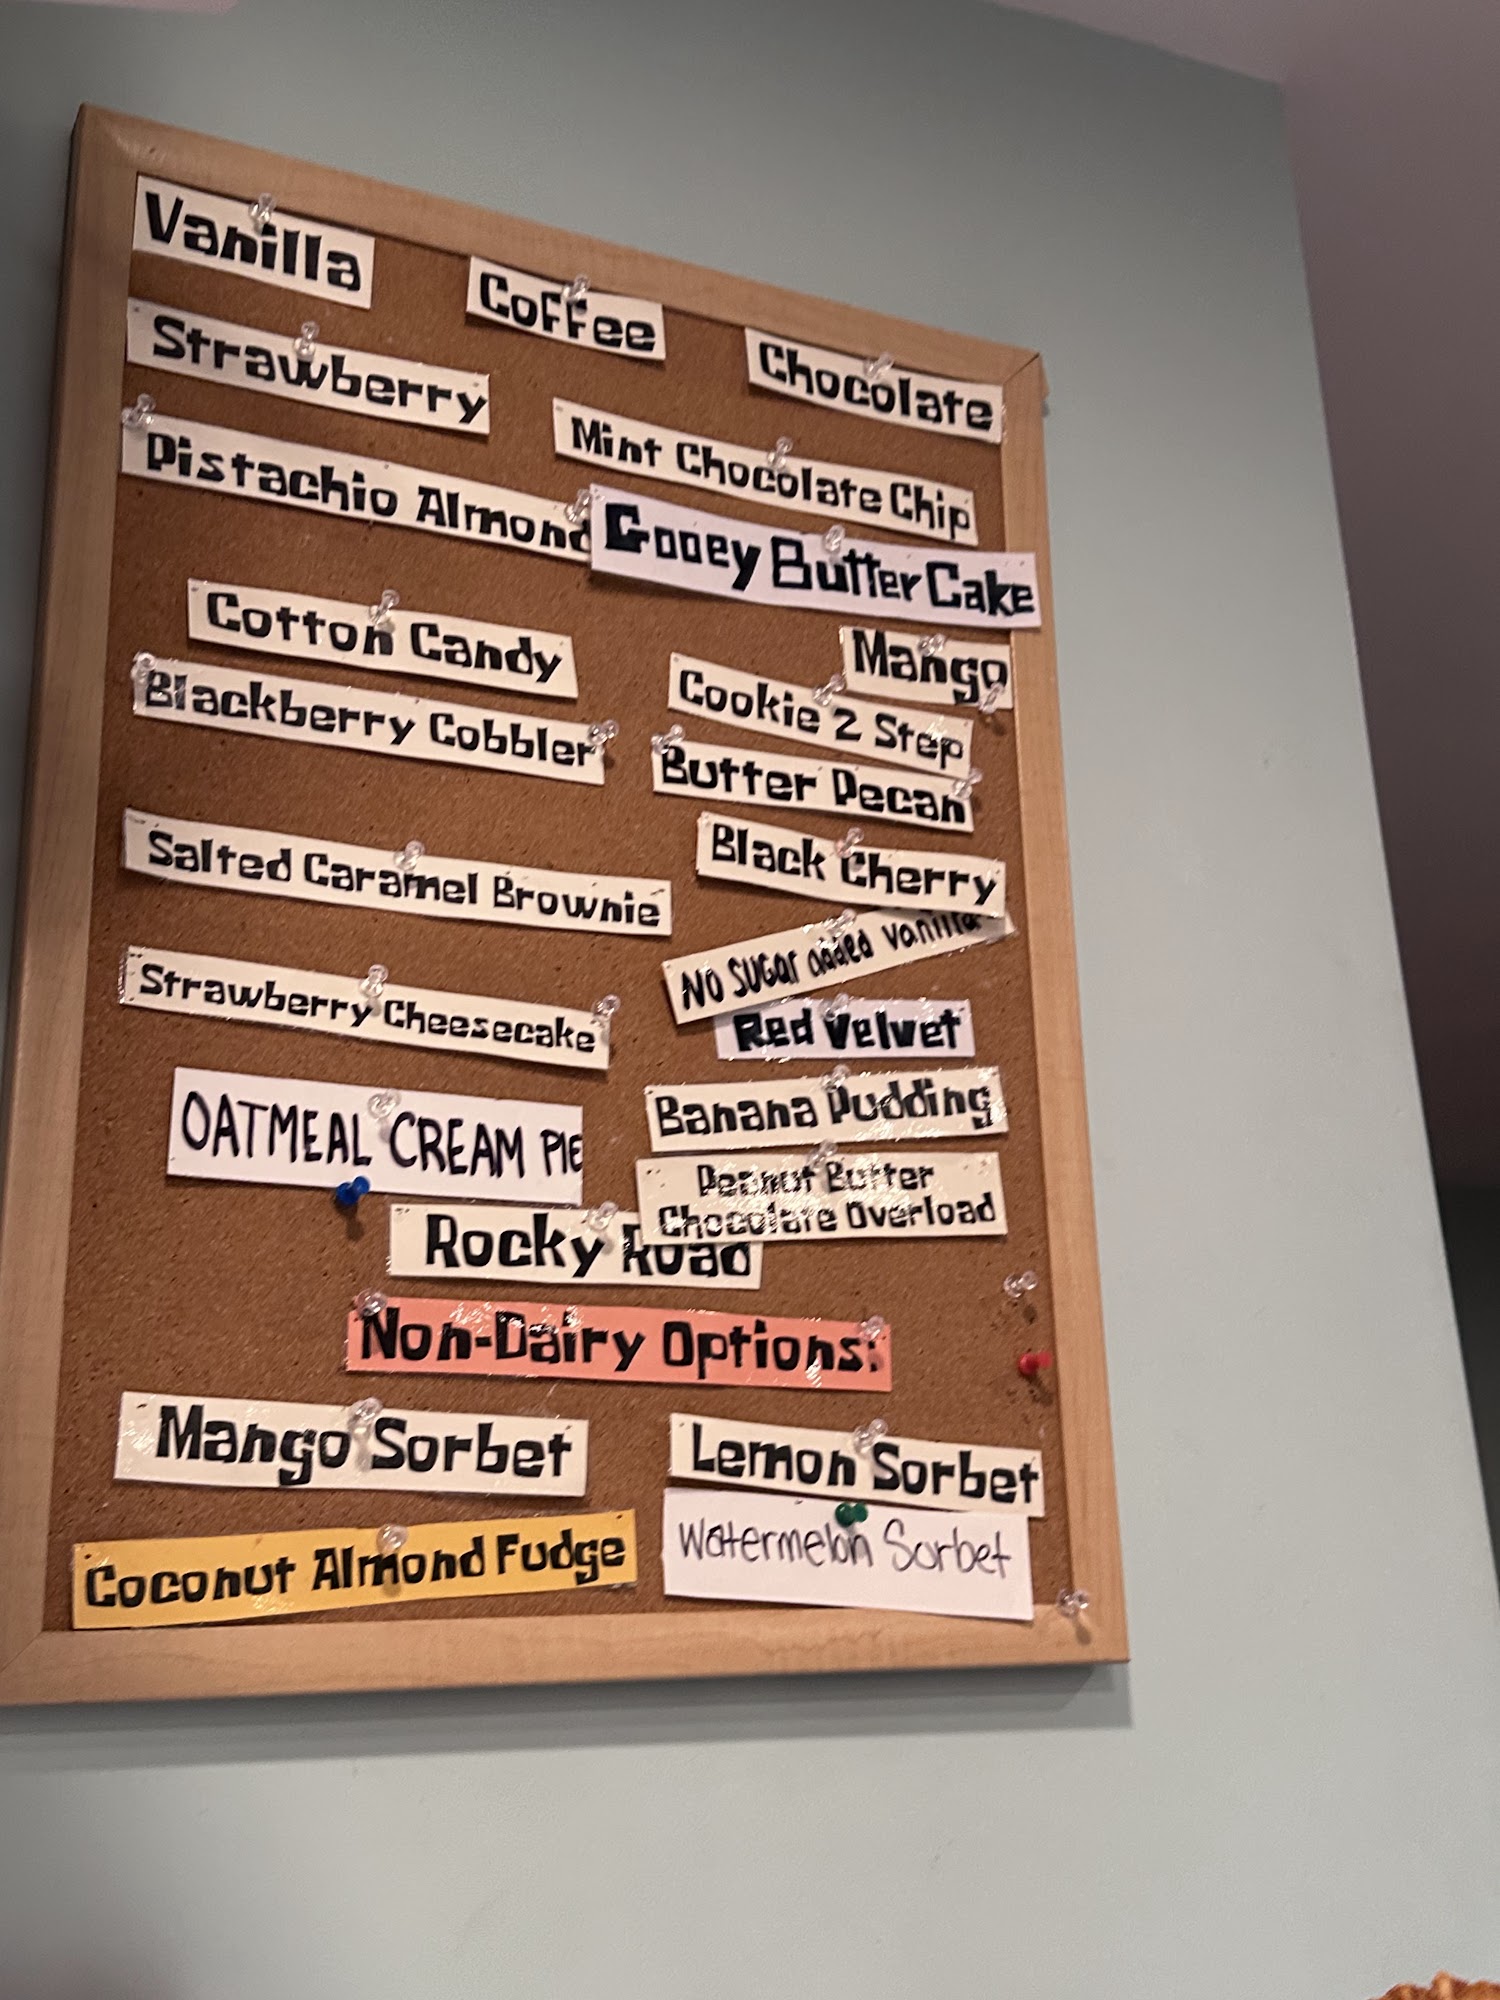 Vanilla
Coffee
Chocolate
Strawberry
Mint Chocolate Chip
Pistachio Almond
Gooey Butter Cake
Cotton Candy
Mango
Cookie 2 Step
Blackberry Cobbler
Butter Pecan
Black Cherry
Salted Caramel Brownie
NO SUGar added vanilla
Strawberry Cheesecake
Red Velvet
Banana Pudding
OATMEAL CREAM PIE
Peanut Butter
Chocolate Overload
Rocky Road
Non-Dairy Options:
Mango Sorbet
Lemon Sorbet
Watermelon Sorbet
Coconut Almond Fudge